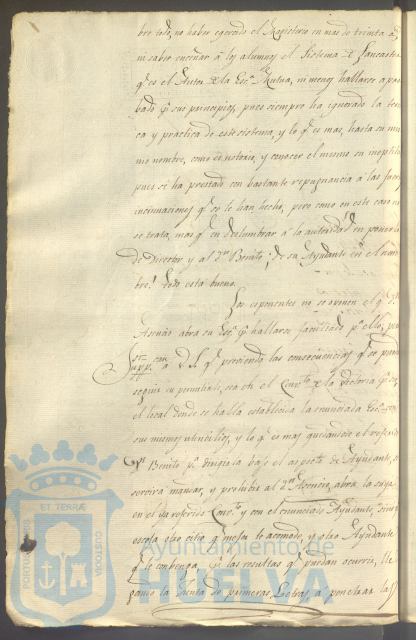 bre todo, no haber egercido el Magisterio en mas de treinta a
ni saber enseñar á los alumnos el Sistema de Lancaster
qe. es el Autor de la Escª. Mutua, ni menos hallarse apro
bado pr. sus principios, pues siempre ha ignorado la teori
ca y práctica de este sistema, y lo qe. es mas, hasta su mis
mo nombre, como es notorio, y conocer el mismo su ineptitud
pues se ha prestado con bastante repugnancia á las
incinuaciones qe. se le han hecho, pero como en este caso no
se trata, mas qe. en deslumbrar á la autoridad en ponerlo
de Director y al Dn. Benito, de su Ayudante en el nom
bre, todo está bueno.
Los esponentes no se oponen el qe. Dn.
Asencio abra su Escª. pr. hallarse facultado pr. ello, pero
á V.S. qe. preveiendo las consecuencias qe. se pueden
seguir en permitirle, sea en el Convto. de la Victoria pr. ser
el local donde se halla establecida la enunciada Escª. con
sus mismos utencilios, y lo qe. es mas quedandose el referido
Dn. Benito pr. dirigirla bajo el aspecto de Ayudante, se
servirá mandar, y prohibir al Dn. Asencio, abra la suya
en el ya referido Convto. y con el enunciado Ayudante,
escoja otro citio qe. mejor le acomode, y otro Ayudante
qe. le combenga, las resultas qe. puedan ocurrir,
la Junta de primeras Letras á ponerlas
ET TERRÆ
PORTUS MARIS
CUSTODIA
Ayuntamiento de
HUELVA